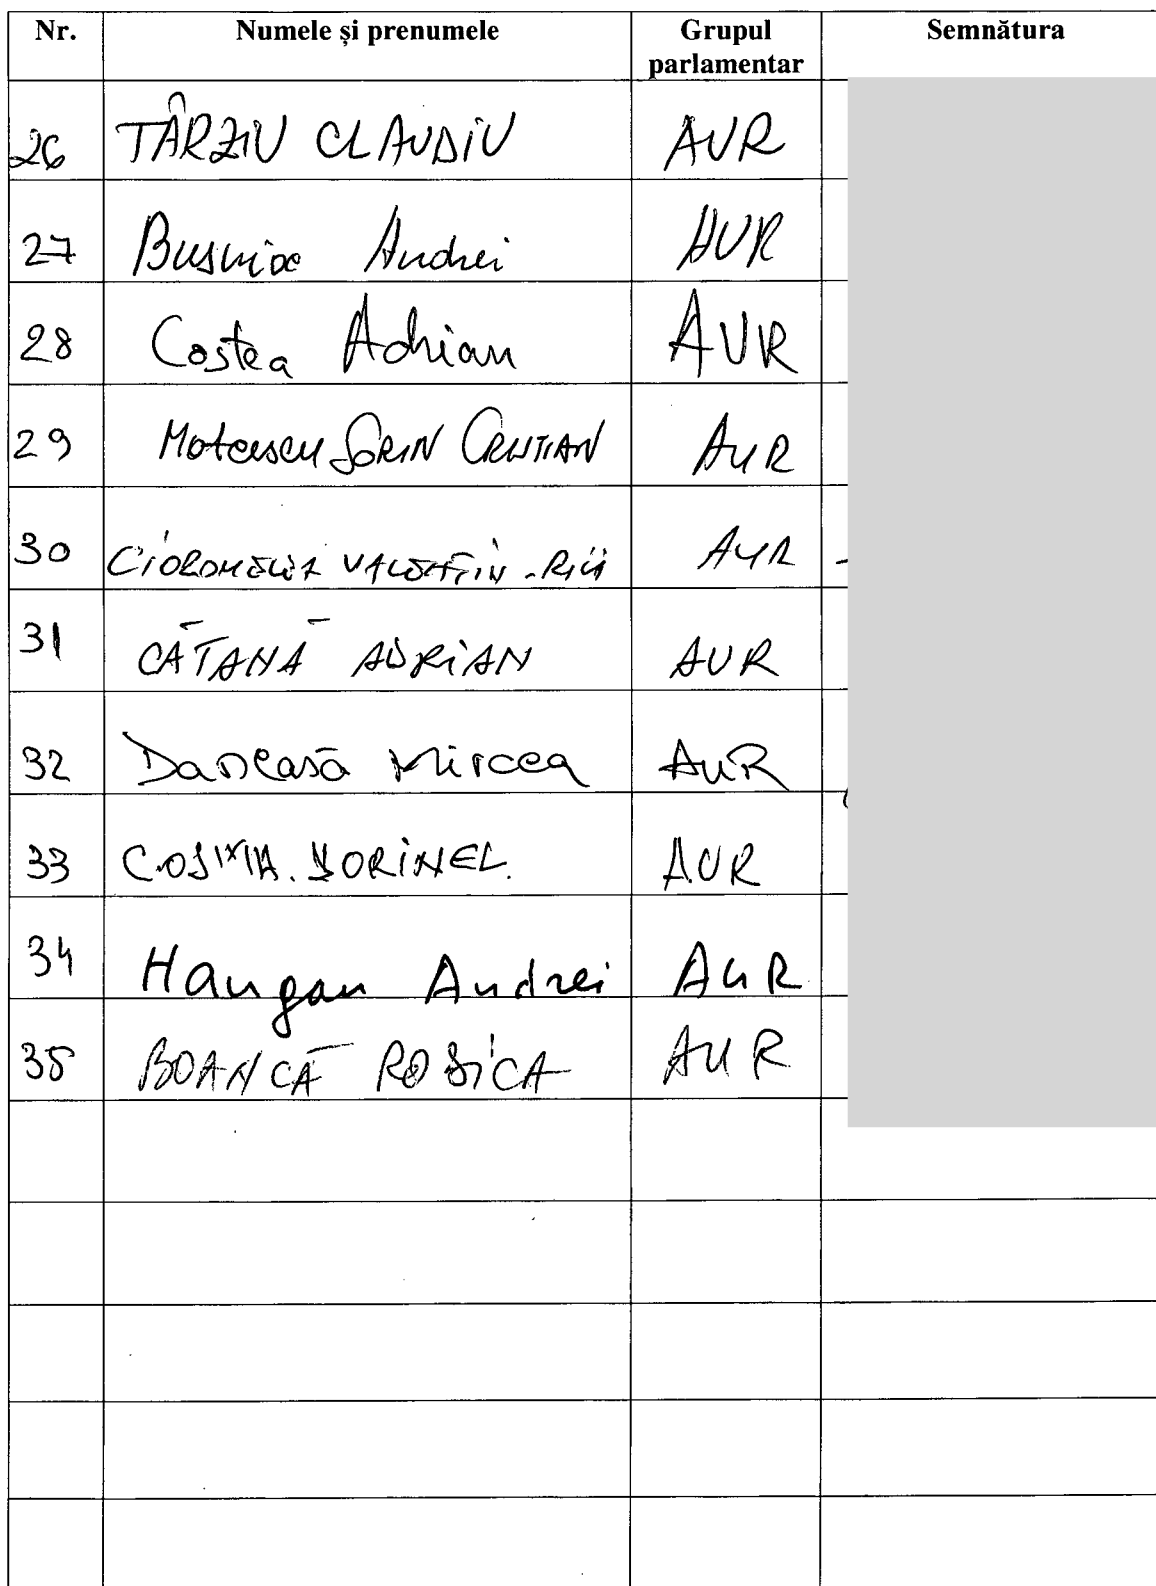 Nr. Numele și prenumele Grupul parlamentar Semnătura
26 TÂRZIU CLAUDIU AUR
27 Busuioc Andrei AUR
28 Costea Adrian AUR
29 SORIN CRISTIAN AUR
30 VALENTIN - AUR
31 CĂTANĂ ADRIAN AUR
32 Mircea AUR
33 COSMA. DORINEL. AUR
34 Haugan Andrei AUR
35 BOANCĂ RODICA AUR